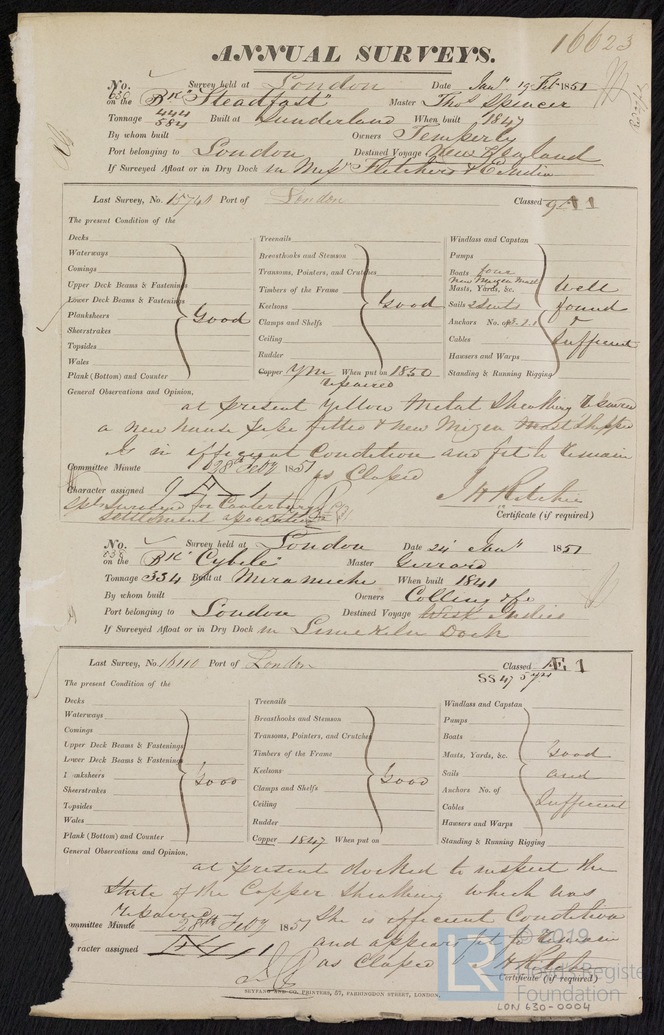 16623
ANNUAL SURVEYS.
No. 630 Survey held at London Date Jany 19 Feb 1851
on the Bk "Steadfast" Master Thos Spencer
Tonnage 444 584 Built at Sunderland When built 1847
By whom built Owners Temperly
Port belonging to London Destined Voyage New Zealand
If Surveyed Afloat or in Dry Dock in Messrs Fletchers &
Last Survey, No. 15740 Port of London Classed 9 A 1
The present Condition of the
Decks
Waterways
Comings
Upper Deck Beams & Fastenings
Lower Deck Beams & Fastenings
Planksheers
Sheerstrakes
Topsides
Wales
Plank (Bottom) and Counter
Good
Treenails
Breasthooks and Stemson
Transoms, Pointers, and Crutches
Timbers of the Frame
Keelsons
Clamps and Shelfs
Ceiling
Rudder
Copper YM When put on 1850
repaired
Good
Windlass and Capstan
Pumps
Boats four
New Mizen Mast
Masts, Yards, &c.
Sails 2 Suits
Anchors No. of 3.2.1
Cables
Hawsers and Warps
Standing & Running Rigging
Well
found
&
Sufficient
General Observations and Opinion,
at present Yellow Metal Sheathing repaired
a new hause pipe fitted & new Mizen Mast
Is in efficient Condition and fit to remain
Committee Minute 28th Feby 1851 as Classed
Character assigned 9 A 1 J H Ritchie
Surveyed for Canterbury
Settlement Association
Certificate (if required)
No. 638 Survey held at London Date 24 Jany 1851
on the Bk "Cybele" Master Gerrard
Tonnage 334 Built at Miramichi When built 1841
By whom built Owners Colling & Co
Port belonging to London Destined Voyage West Indies
If Surveyed Afloat or in Dry Dock in Limekiln Dock
Last Survey, No. 16110 Port of London Classed Æ 1
SS 47 5 yrs
The present Condition of the
Decks
Waterways
Comings
Upper Deck Beams & Fastenings
Lower Deck Beams & Fastenings
Planksheers
Sheerstrakes
Topsides
Wales
Plank (Bottom) and Counter
Good
Treenails
Breasthooks and Stemson
Transoms, Pointers, and Crutches
Timbers of the Frame
Keelsons
Clamps and Shelfs
Ceiling
Rudder
Copper 1847 When put on
Good
Windlass and Capstan
Pumps
Boats
Masts, Yards, &c.
Sails
Anchors No. of
Cables
Hawsers and Warps
Standing & Running Rigging
Good
and
Sufficient
General Observations and Opinion,
at present docked to inspect the
State of the Copper Sheathing which was
repaired She is efficient Condition
mmittee Minute 28th Feby 1851
and appears fit to remain
racter assigned Æ 1 as Classed J H Ritchie
Certificate (if required)
SEYFANG AND CO. PRINTERS, 57, FARINGDON STREET, LONDON.
LR © 2019
Lloyd's Register
Foundation
LON 630-0004